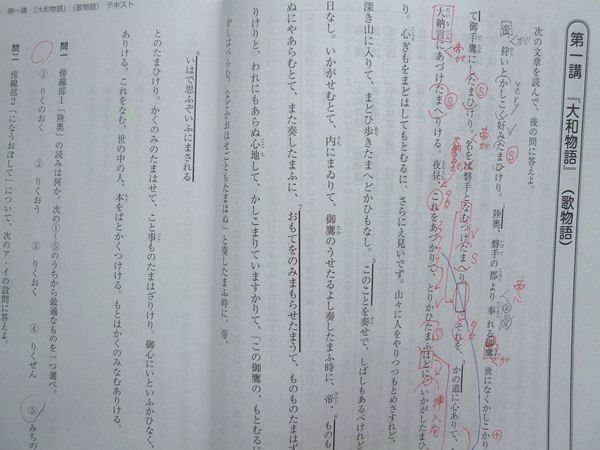 第一講 『大和物語』 (歌物語)
次の文章を読んで、後の問に答えよ。
帝、狩いとかしこく好みたまひけり。陸奥、磐手の郡より奉れる御鷹、世になくかしこかり
て御手鷹にしたまひけり。名を磐手となむつけたまへり。それを、かの道に心ありて、
大納言にあづけたまへりける。夜昼、これをあづかりて、とりかひたまふほどに、いかがしたまひ
り。心ぎもをまどはしてもとむるに、さらにえ見いでず。山々に人をやりつつもとめさすれど、
深き山に入りて、まどひ歩きたまへどかひもなし。このことを奏せで、しばしもあるべけれど
日なし。いかがせむとて、内にまゐりて、御鷹のうせたるよし奏したまふ時に、帝、ものも
ぬにやあらむとて、また奏したまふに、おもてをのみまもらせたまうて、ものものたまはず
りけりと、われにもあらぬ心地して、かしこまりていますかりて、「この御鷹の、もとむるに
かしはべらむ。などかおほせごともたまはぬ」と奏したまふ時に、帝、
いはで思ふぞいふにまされる
とのたまひけり。かくのみのたまはせて、こと事ものたまはざりけり。御心にいといふかひなく、
ありける。これをなむ、世の中の人、本をばとかくつけける。もとはかくのみなむありける。
問一 傍線部1「陸奥」の読みは何か。次の①~⑤のうちから最適なものを一つ選べ。
① りくのおく ② りくおう ③ りくおく ④ りくぜん ⑤ みちの
問二 傍線部2「になうおぼして」について、次のア・イの設問に答えよ。
第一講 『大和物語』(歌物語) テキスト